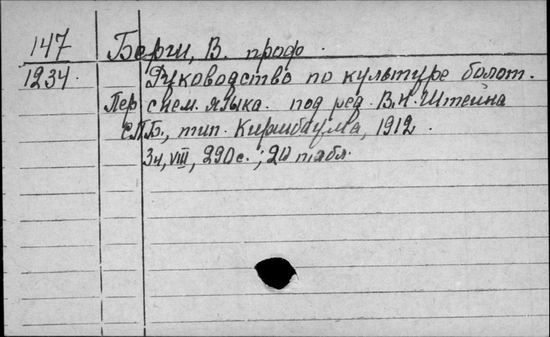 147 Берш, В. проф.
1234. Руководство по культуре болот.
Пер. с нем. языка. под ред. В.И. Штейна
СПБ., тип. Киршбаума, 1912.
3ч, VIII, 290 с.; 20 табл.